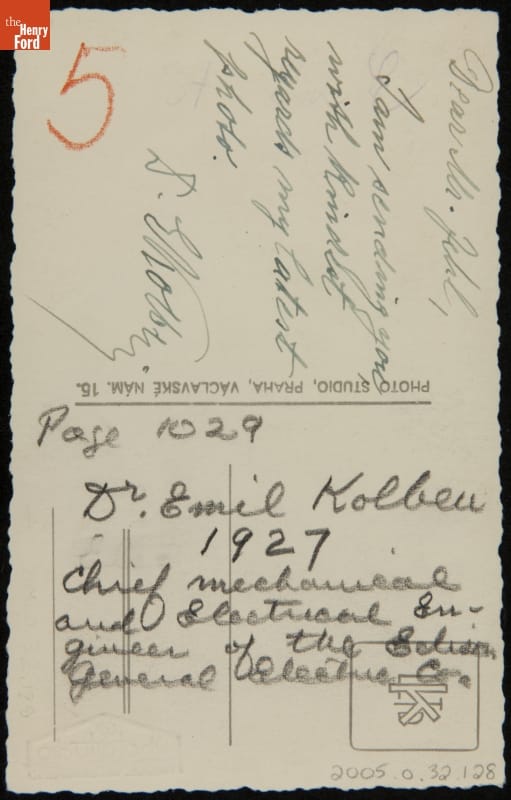 the
Henry
Ford
5
Dear Mr. Jehl,
I am sending you
with kindest
regards my latest
photo.
PHOTO STUDIO, PRAHA, VÁCLAVSKÉ NÁM. 15.
Page 1029
Dr. Emil Kolben
1927
Chief mechanical
and Electrical En-
gineer of the Edison
General Electric Co.
2005.0.32.128